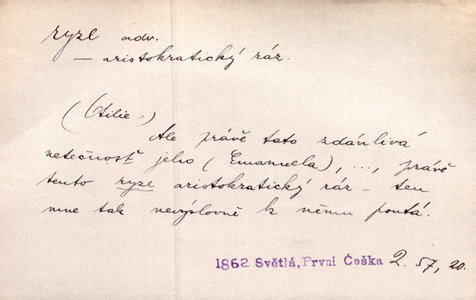 ryze adv.
— aristokratický ráz.
(Otilie.)
Ale právě tato zdánlivá
netečnosť jeho (Emanuela), ..., právě
tento ryze aristokratický ráz – ten
mne tak nevýslovně k němu poutá.
1862 Světlá, První Češka 2. 57, 20.